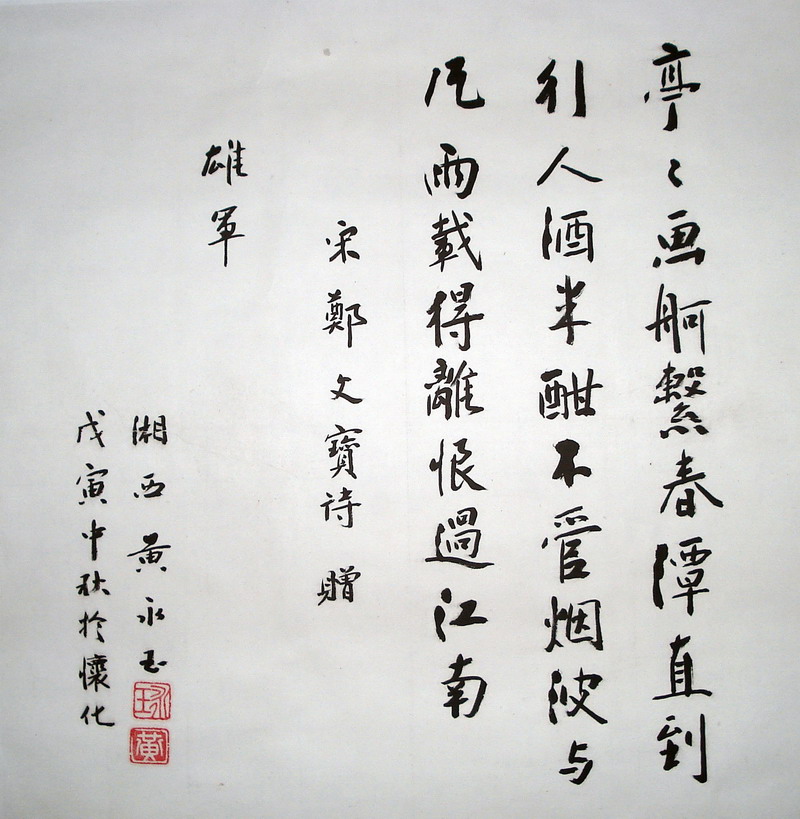 亭〻画舸繫春潭直到
行人酒半酣不管烟波与
风雨載得離恨過江南
宋鄭文寶诗 贈
雄軍
湘西黄永玉
戊寅中秋於懷化
永玉
黄